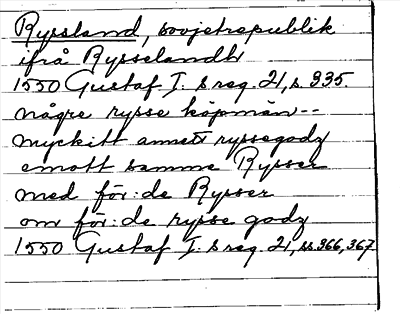 Ryssland, sovjetrepublik
ifrå Rysselandh
1550 Gustaf I:s reg. 21, s. 335.
någre rysse köpmän--
myckitt annett ryssegodz
emott samme Rysser
med för:de Rysser
om för:de rysse godz
1550 Gustaf I:s reg. 21, ss. 366, 367